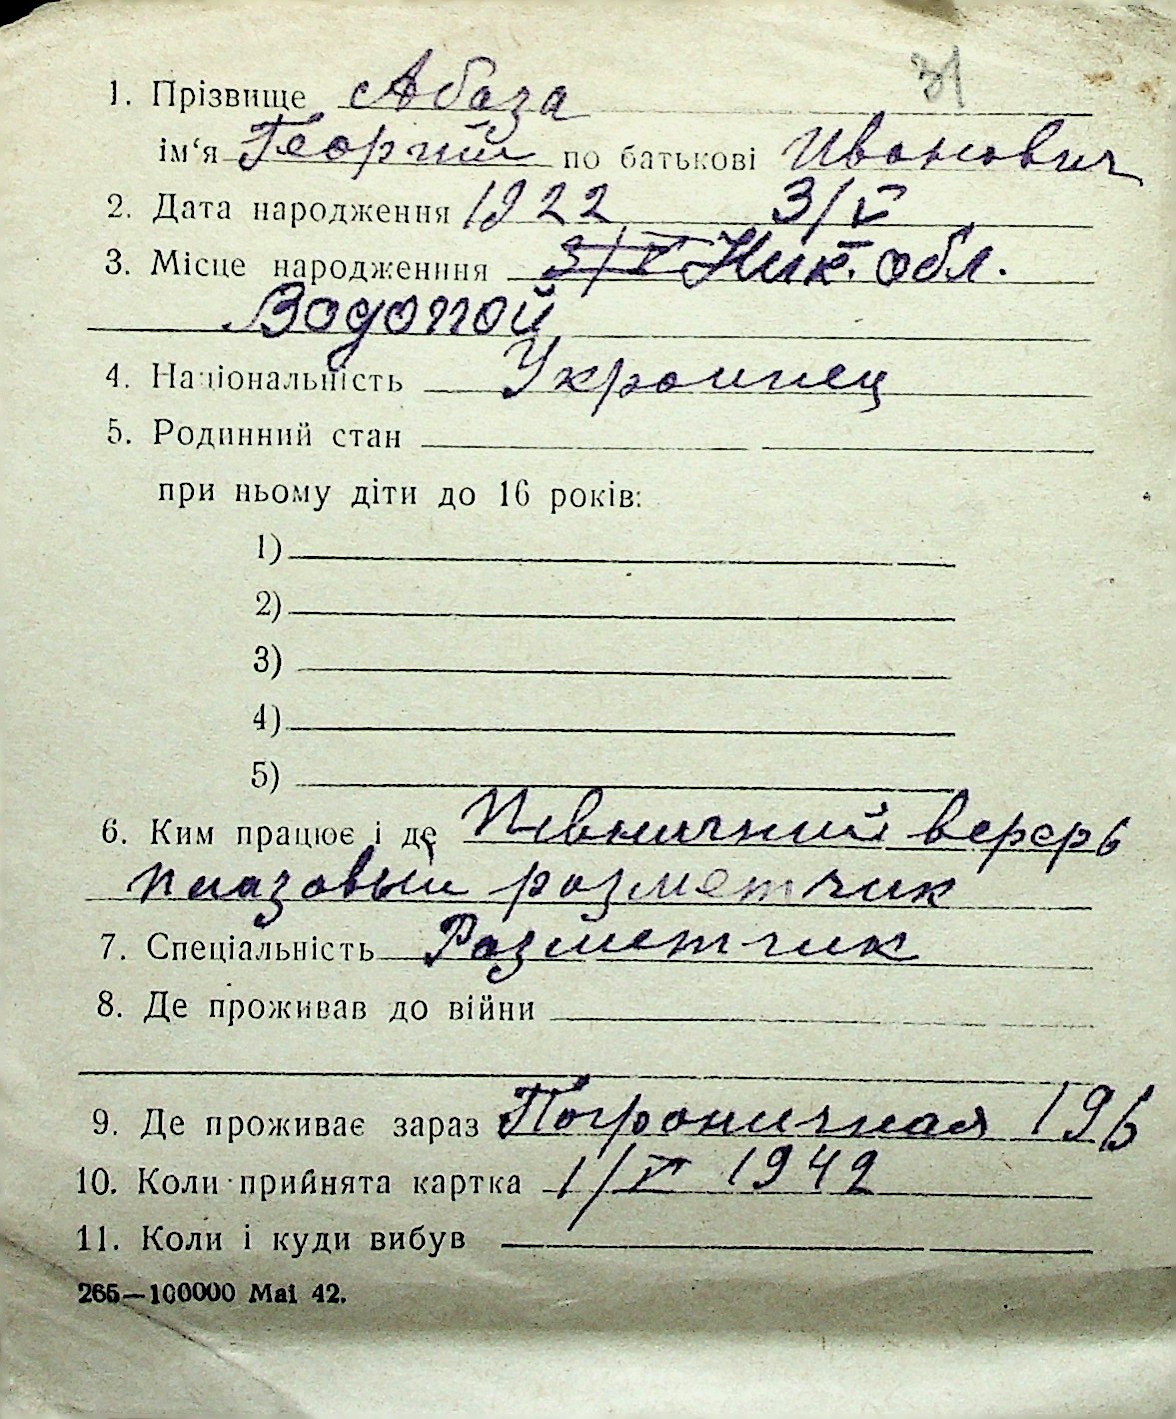 31
1. Прізвище Абаза
ім'я Георгий по батькові Иванович
2. Дата народження 1922 3/V
3. Місце народженння 3/V Ник. обл.
Водопой
4. Національність Украинец
5. Родинний стан
при ньому діти до 16 років:
1)
2)
3)
4)
5)
6. Ким працює і де Північний верфь
плазовый разметчик
7. Спеціальність Разметчик
8. Де проживав до війни
9. Де проживає зараз Пограничная 196
10. Коли прийнята картка 1/V 1942
11. Коли і куди вибув
265—100000 Mai 42.